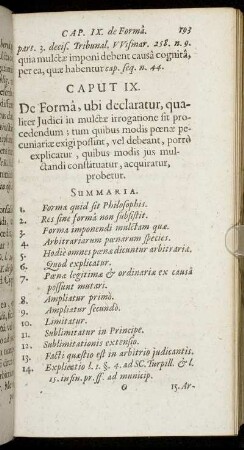 CAP. IX. de Formâ. 193
part. 3. decis. Tribunal. VVismar. 258. n. 9.
quia mulctæ imponi debent causâ cognitâ,
per ea, quæ habentur cap. seq. n. 44.
CAPUT IX.
De Formâ, ubi declaratur, qua-
liter Judici in mulctæ irrogatione sit pro-
cedendum; tum quibus modis pœnæ pe-
cuniariæ exigi possint, vel debeant, porrò
explicatur, quibus modis jus mul-
ctandi constituatur, acquiratur,
probetur.
SUMMARIA.
1. Forma quid sit Philosophis.
2. Res sine formâ non subsistit.
3. Forma imponendi mulctam quæ.
4. Arbitrariarum pœnarum species.
5. Hodiè omnes pœnæ dicuntur arbitraria.
6. Quod explicatur.
7. Pœna legitima & ordinaria ex causâ
possunt mutari.
8. Ampliatur primò.
9. Ampliatur secundò.
10. Limitatur.
11. Sublimitatur in Principe.
12. Sublimitationis extensio.
13. Facti quæstio est in arbitrio judicantis.
14. Explicatio l. 1. §. 4. ad SC. Turpill. & l.
15. in fin. pr. ff. ad municip.
O 15. Ar-